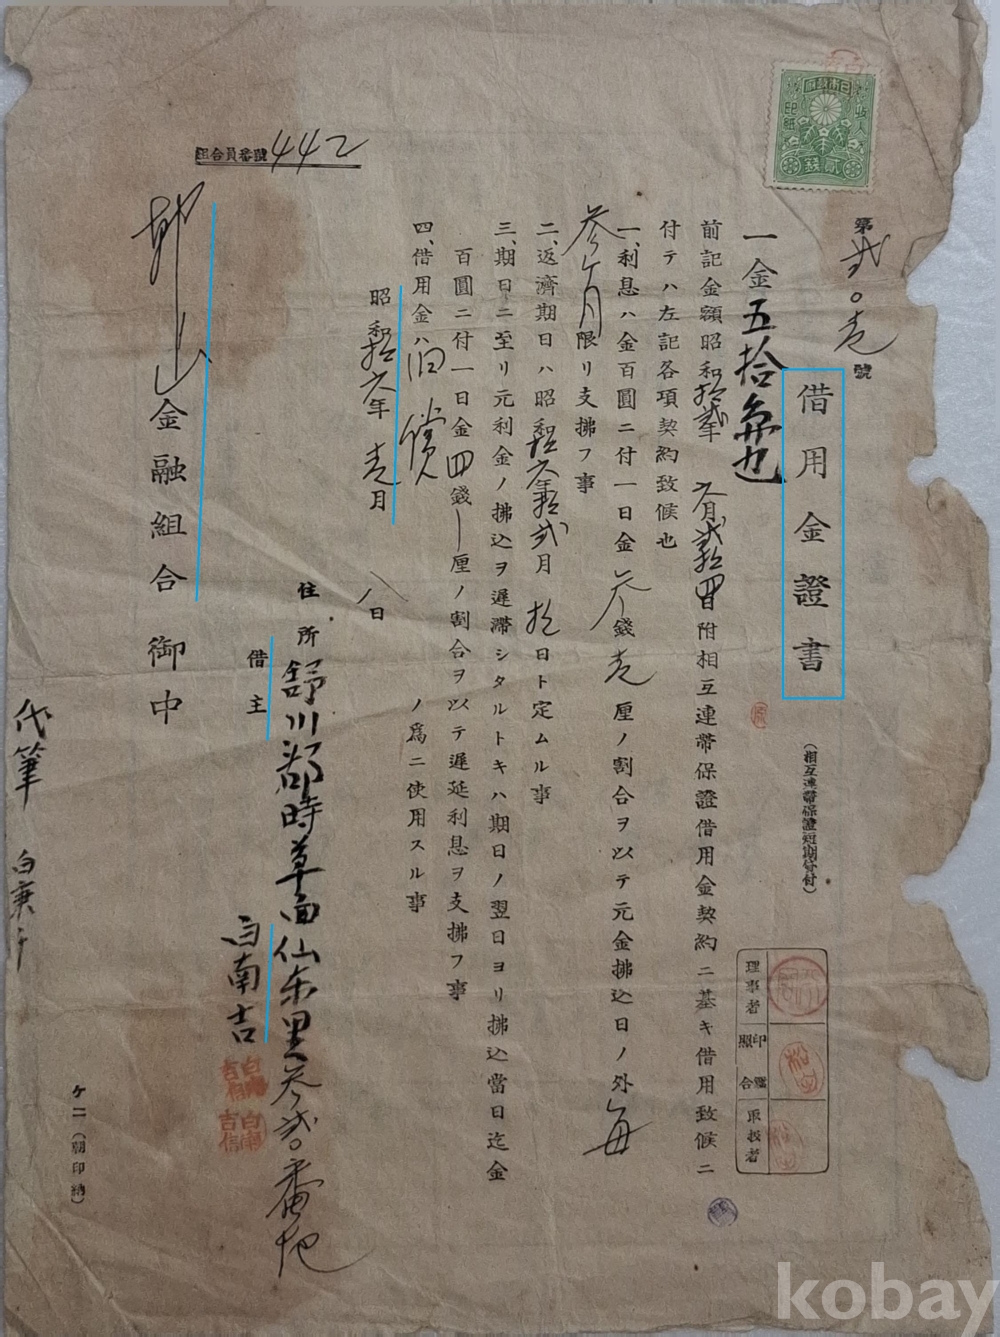 日本政府
收入印紙
貳錢
第貳〇壱號
借用金證書
(相互連帶保證短期貸付)
一金五拾円也
前記金額昭和拾貳年六月貳拾四日附相互連帶保證借用金契約ニ基キ借用致候ニ
付テハ左記各項契約致候也
一、利息ハ金百圓ニ付一日金参錢壱厘ノ割合ヲ以テ元金拂込日ノ外毎
参ケ月限リ支拂フ事
二、返濟期日ハ昭和拾六年拾貳月拾日ト定ムル事
三、期日ニ至リ元利金ノ拂込ヲ遲滯シタルトキハ期日ノ翌日ヨリ拂込當日迄金
百圓ニ付一日金四錢一厘ノ割合ヲ以テ遲延利息ヲ支拂フ事
四、借用金ハ旧償ノ爲ニ使用スル事
昭和拾六年壱月八日
住所 舒川郡時草面仙東里参貳〇番地
借主 白南吉
組合員番號 442
金融組合御中
代筆 白
理事者
印鑑照合
取扱者
ケ二(朝印納)
kobay